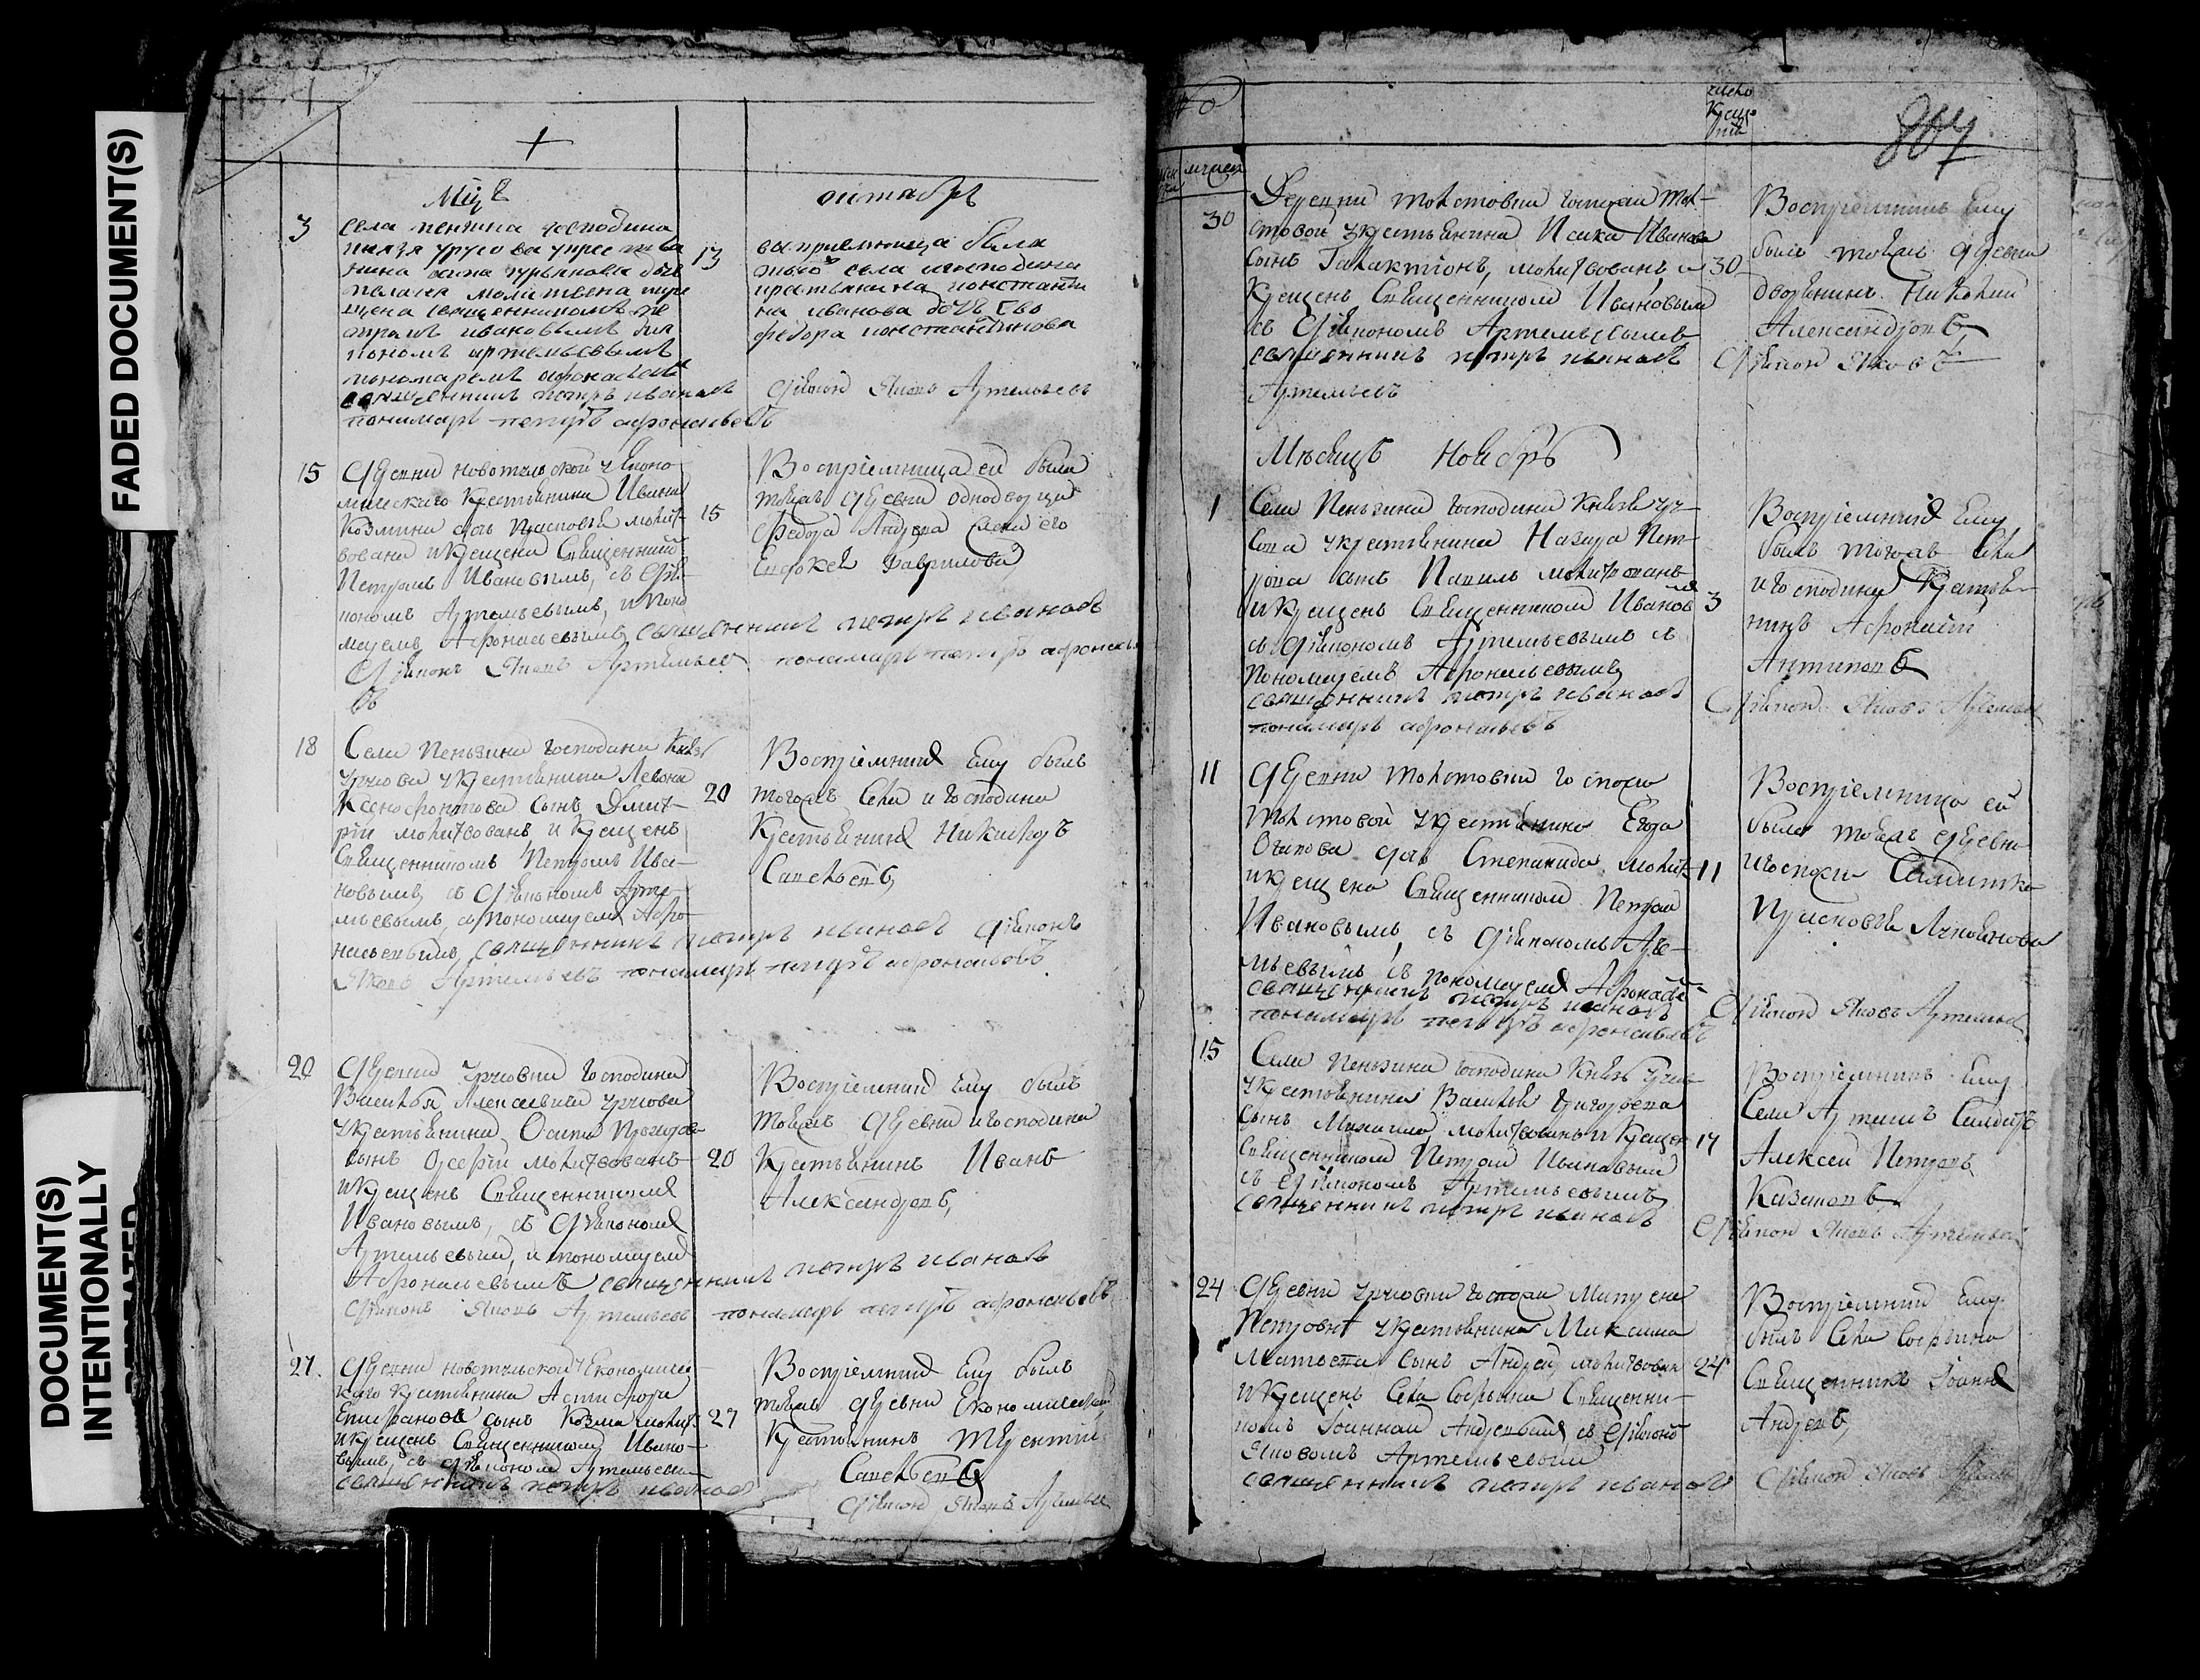 FADED DOCUMENT(S)
DOCUMENT(S)
INTENTIONALLY
+
Мцъ
октябрь
3
села пензина господина
князя урусова у крестья
нина
дочь
пелагея молитвена и кре
щена священникомъ пе
тромъ ивановымъ дья
кономъ артемьевымъ
пономаремъ афонасьев
священникъ петръ ивановъ
пономарь петръ афонасьевъ
13
васприемница была
того села и господина
крестьянина константи
на иванова дочь ево
федора константинова
Діаконъ Яковъ Артемьевъ
15
Деревни новотульской у Еконо
мическаго Крестьянина Ивана
Козмина дочь Прасковья молит
вована и крещена Священник
Петромъ Ивановымъ, съ Дія
кономъ Артемьевымъ, и Поно
маремъ Афонасьевымъ священникъ петръ ивановъ
Діаконъ Яковъ Артемьев пономарь петръ афонась
въ
15
Воспріемница ей была
тояжъ Деревни однодворца
Федора Андреева жена его
Евдокея Гаврилова
18
Села Пензина господина Князя
Урусова у крестьянина Левона
Ксенофонтова сынъ Дмит-
рій молитвованъ и Крещенъ
Священникомъ Петромъ Ива-
новымъ, съ Діакономъ Арте-
мьевымъ, съ Пономаремъ Афо-
насьевымъ, священникъ петръ ивановъ Діаконъ
Яковъ Артемьевъ пономарь петръ афонасьевъ
20
Воспріемникъ Ему былъ
тогожъ Села и господина
Крестьянинъ Никифоръ
Савельевъ
20
Деревни Урусовки господина
Василья Алексеевича Урусова
у крестьянина Осипа
сынъ молитвованъ
и Крещенъ Священникомъ
Ивановымъ, съ Діакономъ
Артемьевымъ, и пономаремъ
Афонасьевымъ священникъ петръ ивановъ
Діаконъ Яковъ Артемьевъ пономарь петръ афонасьевъ
20
Воспріемникъ Ему былъ
тояжъ Деревни и господина
Крестьянинъ Иванъ
Александровъ,
27.
Деревни новотульской у Економичес-
каго Крестьянина
Епифанова сынъ Козма молит
и Крещенъ Священникомъ Ивано-
вымъ, съ діакономъ Артемьевы
священникъ петръ ивановъ
27
Воспріемникъ Ему былъ
тояжъ деревни Економической
Крестьянинъ Терентій
Савельевъ
Діаконъ Яковъ Артемьев
число
Крещ
нія
807
30
Деревни толстовки госпожи Тол-
стовой у крестьянина Исака Иванова
сынъ Галактіонъ, молитвованъ и
Крещенъ Священникомъ Ивановымъ
съ Діакономъ Артемьевымъ
священникъ петръ ивановъ
Артемьевъ
30
Воспріемникъ Ему
былъ тояжъ Деревни
дворянинъ Николай
Александровъ,
Діаконъ Яковъ
Мѣсяцъ Ноябрь
1
Села Пензина господина Князя Уру-
сова у крестьянина Назара Пет-
рова сынъ молитвованъ
и Крещенъ Священникомъ Иванов
съ Діакономъ Артемьевымъ съ
Пономаремъ Афонасьевымъ
священникъ петръ ивановъ
пономарь афонасьевъ
3
Воспріемникъ Ему
былъ тогожъ Села
и господина Крестья-
нинъ Афонасій
Антиповъ
Діаконъ Яковъ Артемьев
11
Деревни толстовки госпожи
Толстовой у крестьянина Егора
Осипова дочь Степанида молит
и крещена Священникомъ Петром
Ивановымъ, съ Діакономъ Арте-
мьевымъ, съ пономаремъ Афонасье
священникъ петръ ивановъ
пономарь петръ афонасьевъ
11
Воспріемница ей
была тояжъ деревни
и госпожи Салдатка
Прасковья
Діаконъ Яковъ Артемьев
15
Села Пензина господина Князя Урусо
у крестьянина Василья Григорьева
сынъ Михаила молитвованъ и Крещен
Священникомъ Петромъ Ивановымъ
съ Діакономъ Артемьевымъ
священникъ петръ ивановъ
17
Воспріемникъ Ему
Села Салдатъ
Алексей Петровъ
Казаковъ
Діаконъ Яковъ Артемьев
24
Деревни Урусовки госпожи
Петровны у крестьянина Максима
Матвеева сынъ Андрей, молитвован
и Крещенъ Села Софьина Священни-
комъ Іоанномъ Андреевымъ съ Діакон
Яковомъ Артемьевымъ
священникъ петръ ивановъ
24
Воспріемникъ Ему
былъ Села Софьина
Священникъ Іоаннъ
Андреевъ,
Діаконъ Яковъ Артемьев